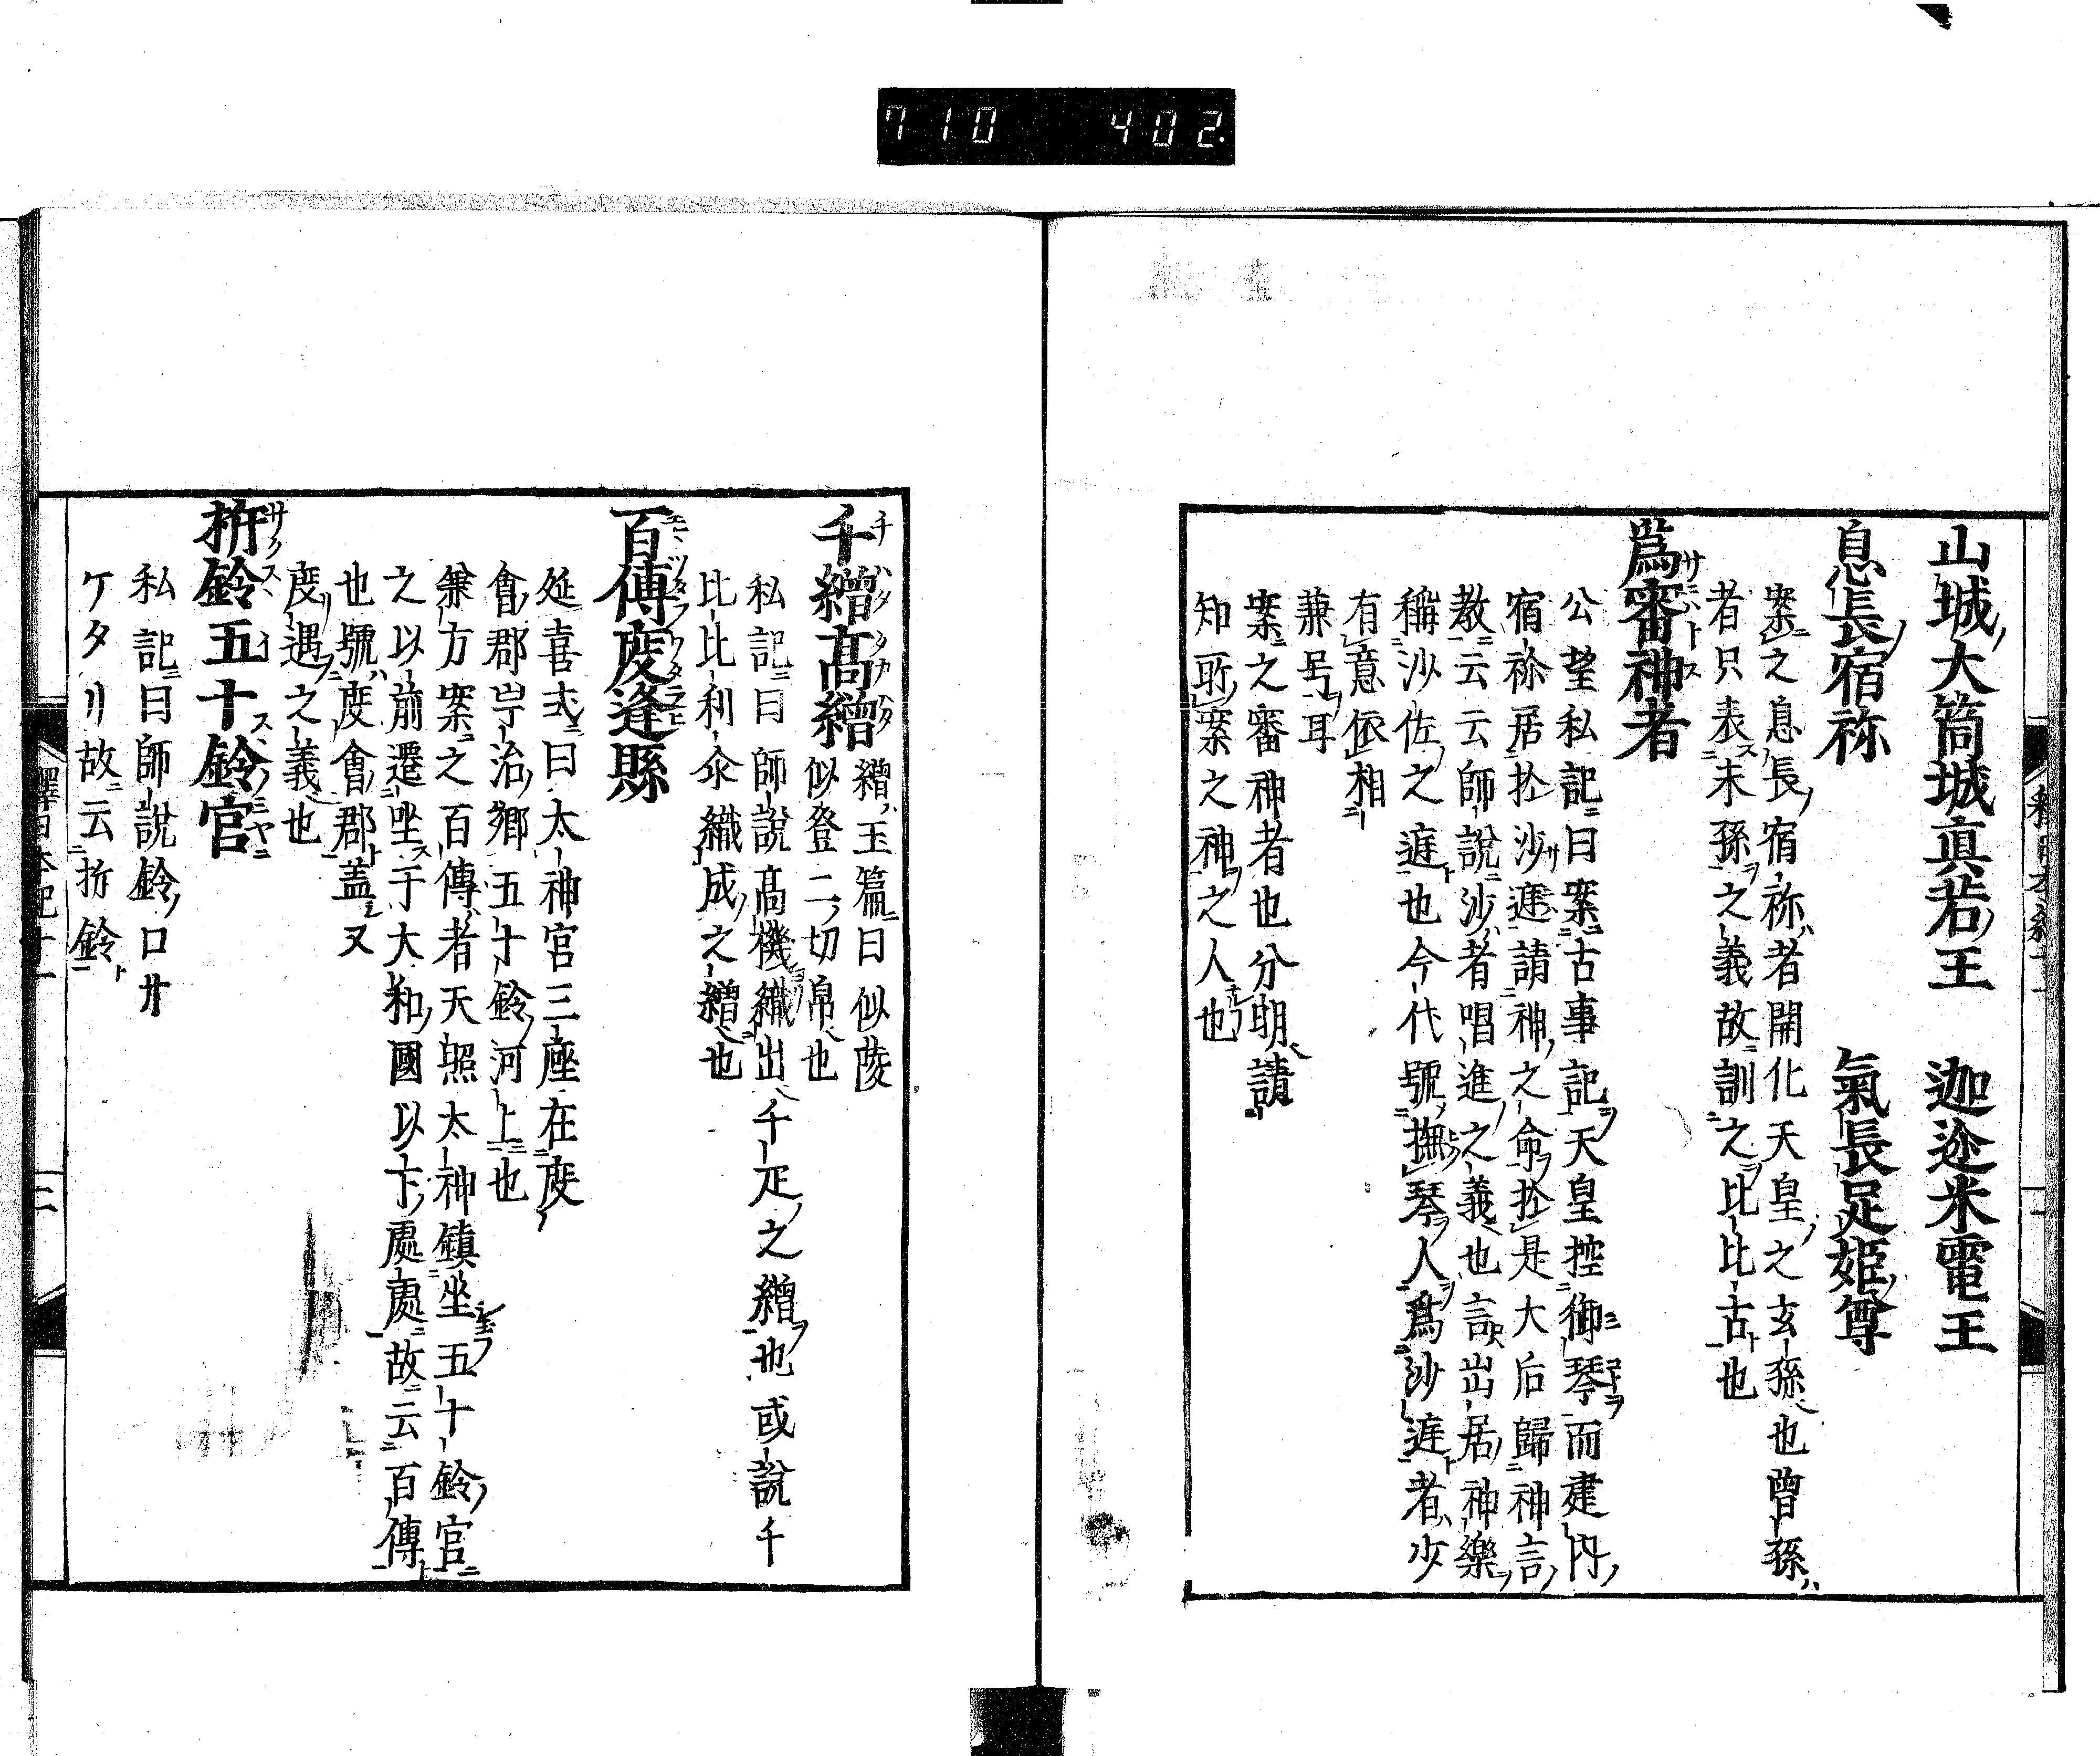 710 402.
山城大筒城真若王 迦迩米雷王
息長宿祢 氣長足姫尊
案之息長宿祢者開化天皇之玄孫也曾孫
者只表末孫之義故訓之比比古也
爲審神者
公望私記曰案古事記天皇控御琴而建内
宿祢居於沙庭請神之命於是大后歸神言
教云云師說沙者唱進之義也言出居神樂
稱沙佐之庭也今代號撫琴人爲沙庭者少
有意依相
兼号耳
案之審神者也分明請
知所案之神之人也
千繒高繒 繒玉篇曰似陵
似登二切帛也
私記曰師說高機織出千疋之繒也或說千
比比利尒織成之繒也
百傳度逢縣
延喜式曰太神宮三座在度
會郡宇治鄉五十鈴河上也
兼方案之百傳者天照太神鎮坐五十鈴宮
之以前遷坐于大和國以下處處故云百傳
也號度會郡蓋又
度遇之義也
拆鈴五十鈴宮
私記曰師說鈴口サ
ケタリ故云拆鈴
釋日本紀十一 三